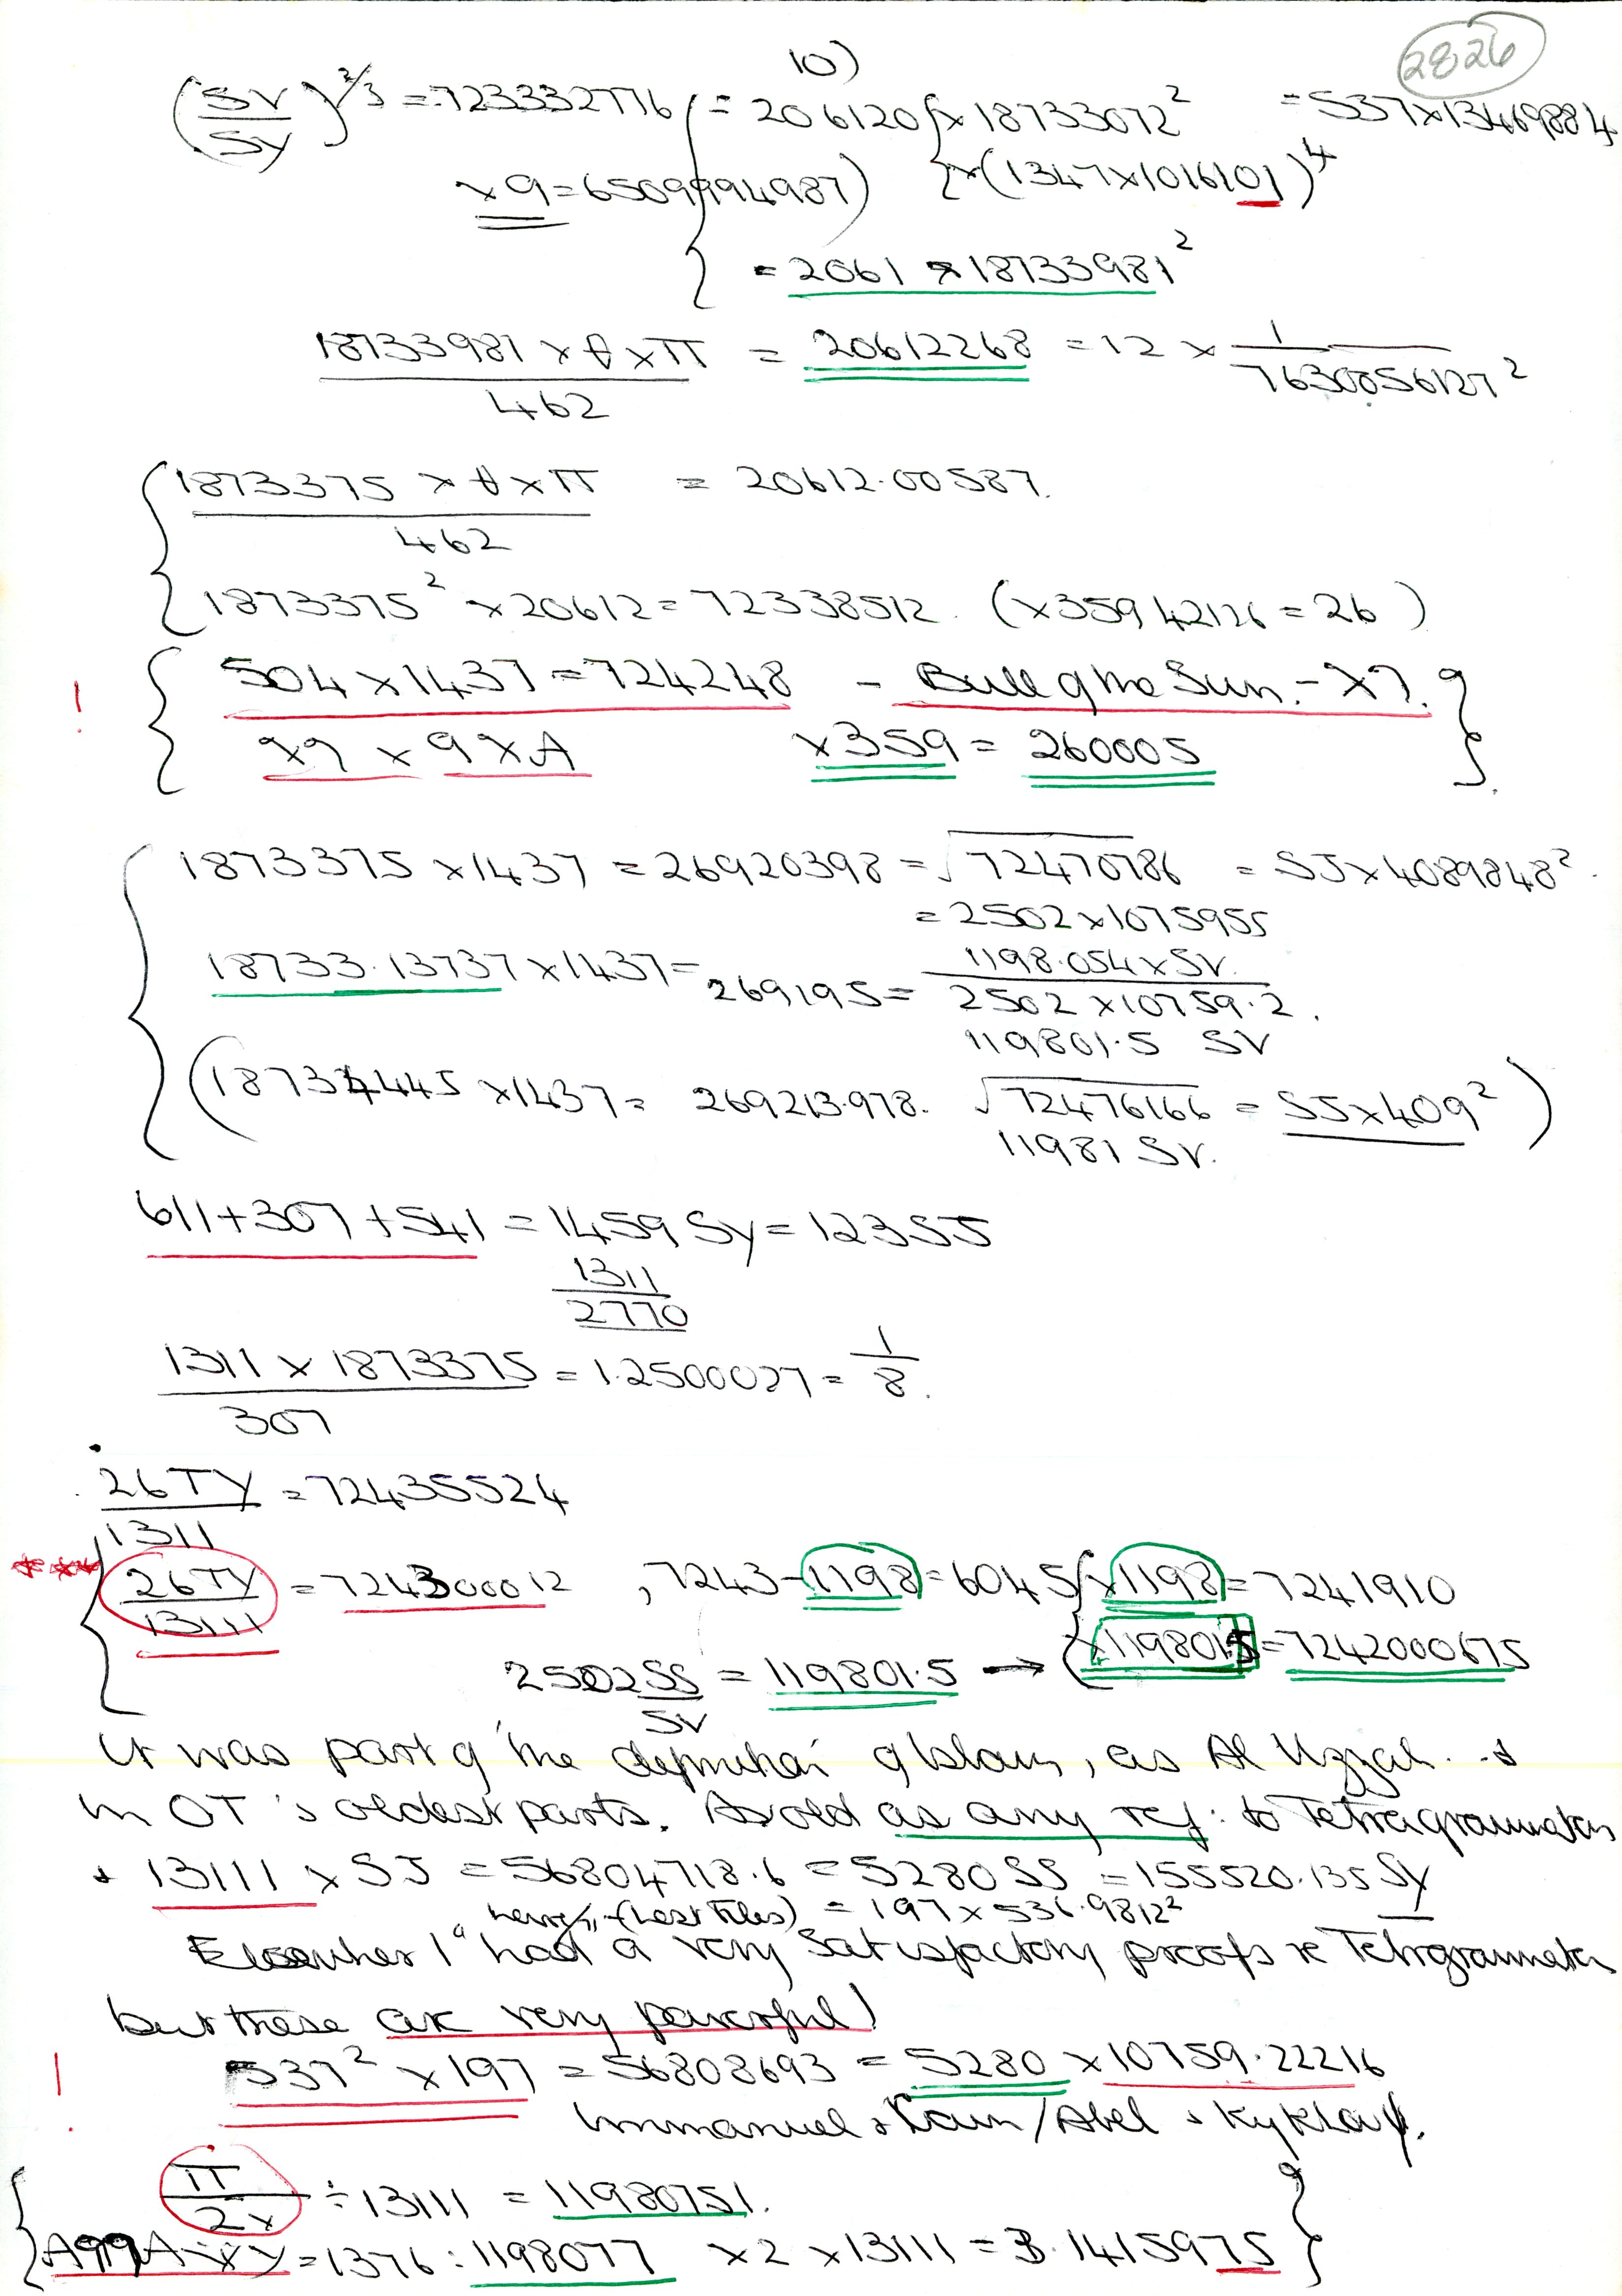 10)
2826
(SV/SY)^2/3 = .723332776 { = 206120 { x 18733072² = 537 x 13469884
x 9 = 6509994987) { x (1347 x 1016101)⁴
= 2061 x 18733981²
18733981 x θ x π / 462 = 20612268 = 12 x 1/7630856127²
{ 1873375 x θ x π / 462 = 20612.00587.
1873375² x 20612 = 72338512. (x 35942126 = 26)
! { 504 x 1437 = 724248 - Bull of the Sun. - X7. }
x7 x 9 x A x359 = 260005
{ 1873375 x 1437 = 26920398 = √72470786 = SJ x 4089848².
= 2502 x 1075955
18733.13737 x 1437 = 269195 = 1198.054 x SV. / 2502 x 10759.2.
119801.5 SV
(18734445 x 1437 = 269213.978. √72476166 = SJ x 409²)
11981 SV.
611 + 307 + 541 = 1459 SY = 123 SJ
1311
2770
1311 x 1873375 / 307 = 1.2500027 = 1/8.
26 TY / 1311 = 72435524
{ 26 TY / 13111 = 724300012 , 7243 - 1198 = 6045 { x 1198 = 7241910
2502 SS / SV = 119801.5 → { x 119801.5 = 7242000675
It was part of the definition of Islam, as Al Uzzah. &
in OT's oldest parts. As old as any ref: to Tetragrammaton
& 13111 x SJ = 56804718.6 = 5280 SS = 155520.135 SY
(Lost Tribes) = 197 x 536.9812²
Elsewhere I "had" a very satisfactory proofs re Tetragrammaton
but these are very powerful!
! 537² x 197 = 56808693 = 5280 x 10759.22216
Immanuel & Cain/Abel &
{ π/2x ÷ 13111 = 11980751. }
A99A XY = 1376 : 1198077 x 2 x 13111 = 3.1415975